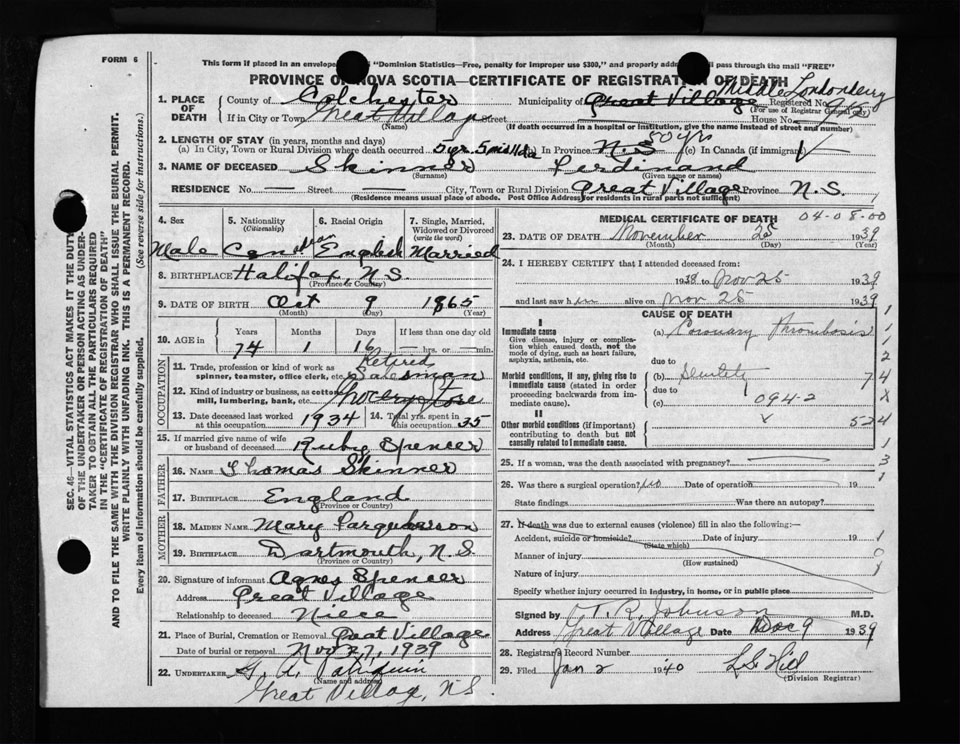 FORM 6
This form if placed in an envelope "Dominion Statistics—Free, penalty for improper use $300," and properly addressed pass through the mail "FREE"
PROVINCE OF NOVA SCOTIA—CERTIFICATE OF REGISTRATION OF DEATH
1. PLACE OF DEATH County of Colchester Municipality of Great Village Middle Londonderry Registered No.
(For use of Registrar General only)
If in City or Town Great Village Street House No.
(Name) (If death occurred in a hospital or institution, give the name instead of street and number)
2. LENGTH OF STAY (in years, months and days)
(a) In City, Town or Rural Division where death occurred 5 yr 5 mis In Province N.S 50 yrs (c) In Canada (if immigrant)
3. NAME OF DECEASED Skinner Ferdinand
(Surname) (Given name or names)
RESIDENCE No. — Street — City, Town or Rural Division Great Village Province N.S.
(Residence means usual place of abode. Post Office Address for residents in rural parts not sufficient)
4. Sex Male
5. Nationality (Citizenship) Canadian
6. Racial Origin English
7. Single, Married, Widowed or Divorced (write the word) Married
8. BIRTHPLACE Halifax, N.S.
(Province or Country)
9. DATE OF BIRTH Oct 9 1865
(Month) (Day) (Year)
10. AGE in Years Months Days If less than one day old
74 1 16 — hrs. or — min.
OCCUPATION
11. Trade, profession or kind of work as spinner, teamster, office clerk, etc. Retired Salesman
12. Kind of industry or business, as cotton mill, lumbering, bank, etc. Grocery Store
13. Date deceased last worked at this occupation 1934
14. Total yrs. spent in this occupation 35
15. If married give name of wife or husband of deceased Ruby Spencer
FATHER
16. NAME Thomas Skinner
17. BIRTHPLACE England
(Province or Country)
MOTHER
18. MAIDEN NAME Mary Farquharson
19. BIRTHPLACE Dartmouth, N.S.
(Province or Country)
20. Signature of informant Agnes Spencer
Address Great Village
Relationship to deceased Niece
21. Place of Burial, Cremation or Removal Great Village
Date of burial or removal Nov 27, 1939
22. UNDERTAKER
(Name and address)
Great Village, N.S.
MEDICAL CERTIFICATE OF DEATH 04-08-00
23. DATE OF DEATH November 25 1939
(Month) (Day) (Year)
24. I HEREBY CERTIFY that I attended deceased from:
1938 to Nov 25 1939
and last saw him alive on Nov 25 1939
CAUSE OF DEATH
I
Immediate cause (a) Coronary Thrombosis
Give disease, injury or complication which caused death, not the mode of dying, such as heart failure, asphyxia, asthenia, etc.
due to
Morbid conditions, if any, giving rise to immediate cause (stated in order proceeding backwards from immediate cause). (b) Senility
due to
(c) 094-2
II
Other morbid conditions (if important) contributing to death but not causally related to immediate cause.
1
1
2
7 4
x
x 524
1
3
1
25. If a woman, was the death associated with pregnancy?
26. Was there a surgical operation? no Date of operation 19
State findings Was there an autopsy?
27. If death was due to external causes (violence) fill in also the following:—
Accident, suicide or homicide? Date of injury 19
(State which)
Manner of injury
(How sustained)
Nature of injury
Specify whether injury occurred in industry, in home, or in public place
Signed by T. R. Johnson M.D.
Address Great Village Date Dec 9 1939
28. Registrar's Record Number
29. Filed Jan 2 1940 L S Hill
(Division Registrar)
SEC. 46—VITAL STATISTICS ACT MAKES IT THE DUTY OF THE UNDERTAKER OR PERSON ACTING AS UNDERTAKER TO OBTAIN ALL THE PARTICULARS REQUIRED IN THE "CERTIFICATE OF REGISTRATION OF DEATH" AND TO FILE THE SAME WITH THE DIVISION REGISTRAR WHO SHALL ISSUE THE BURIAL PERMIT.
WRITE PLAINLY WITH UNFADING INK. THIS IS A PERMANENT RECORD.
Every item of information should be carefully supplied. (See reverse side for instructions.)